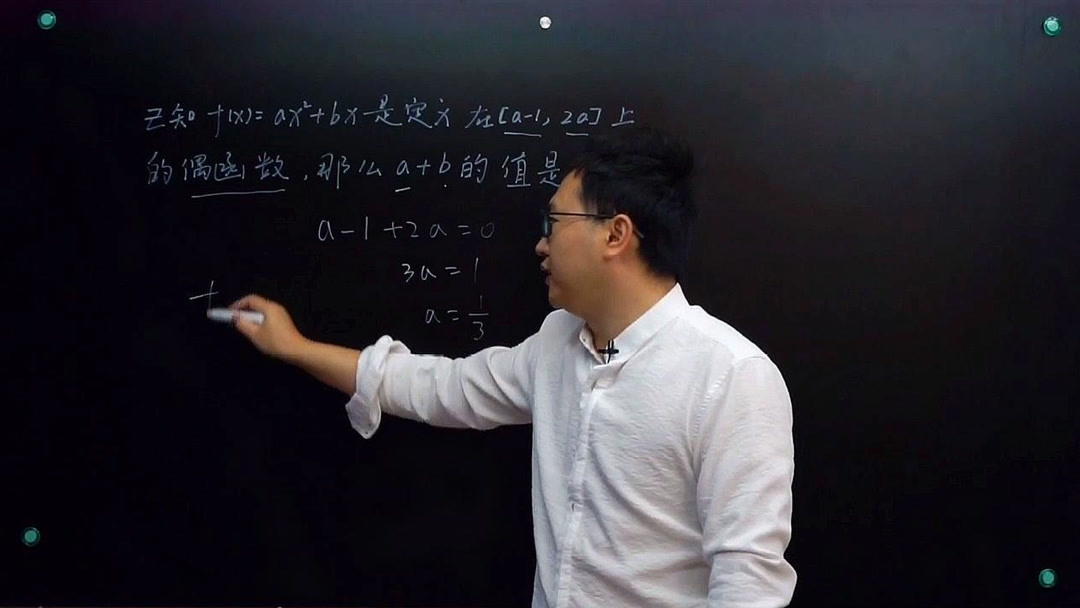 已知 f(x)=ax²+bx 是定义在[a-1, 2a]上
的偶函数,那么 a+b 的值是
a-1+2a=0
3a=1
a=1/3